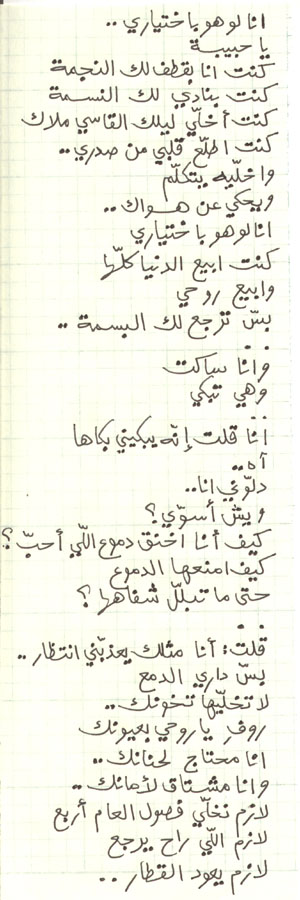 انا لو هو باختياري ..
يا حبيبة
كنت انا بقطف لك النجمة
كنت بنادي لك النسمة
كنت أخلّي ليلك القاسي ملاك
كنت اطلّع قلبي من صدري ..
واخلّيه يتكلّم
ويحكي عن هواك ..
انا لو هو باختياري
كنت ابيع الدنيا كلّها
وابيع روحي
بسّ ترجع لك البسمة ..
. .
وانا ساكت
وهي تبكي
. .
انا قلت إنّه يبكيني بكاها
آه ..
دلّوني انا ..
وبش أسوّي ؟
كيف أنا اخنق دموع اللّي أحبّ ؟
كيف امنعها الدموع
حتى ما تبلّل شفاهها ؟
. .
قلت : أنا مثلك يعذبّني انتظار ..
بسّ داري الدمع
لا تخلّيها تخونك ..
روفِ يا روحي بعيونك
انا محتاج لحنانك ..
وانا مشتاق لأمانك ..
لازم نخلّي فصول العام أربع
لازم اللّي راح يرجع
لازم يعود القطار ..